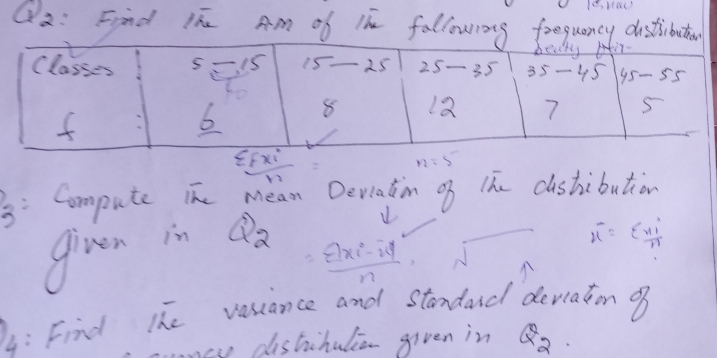 Q2: Find the AM of the following frequency distribution
Classes : 5-15 15-25 25-35 35-45 45-55
f : 6 8 12 7 5
Σfxi/n = n=5
Q3: Compute the Mean Deviation of the distribution
given in Q2
= Σ|xi-x̄|/n, √ x̄ = Σxi/n
Q4: Find the variance and Standard deviation of
distribution given in Q2.